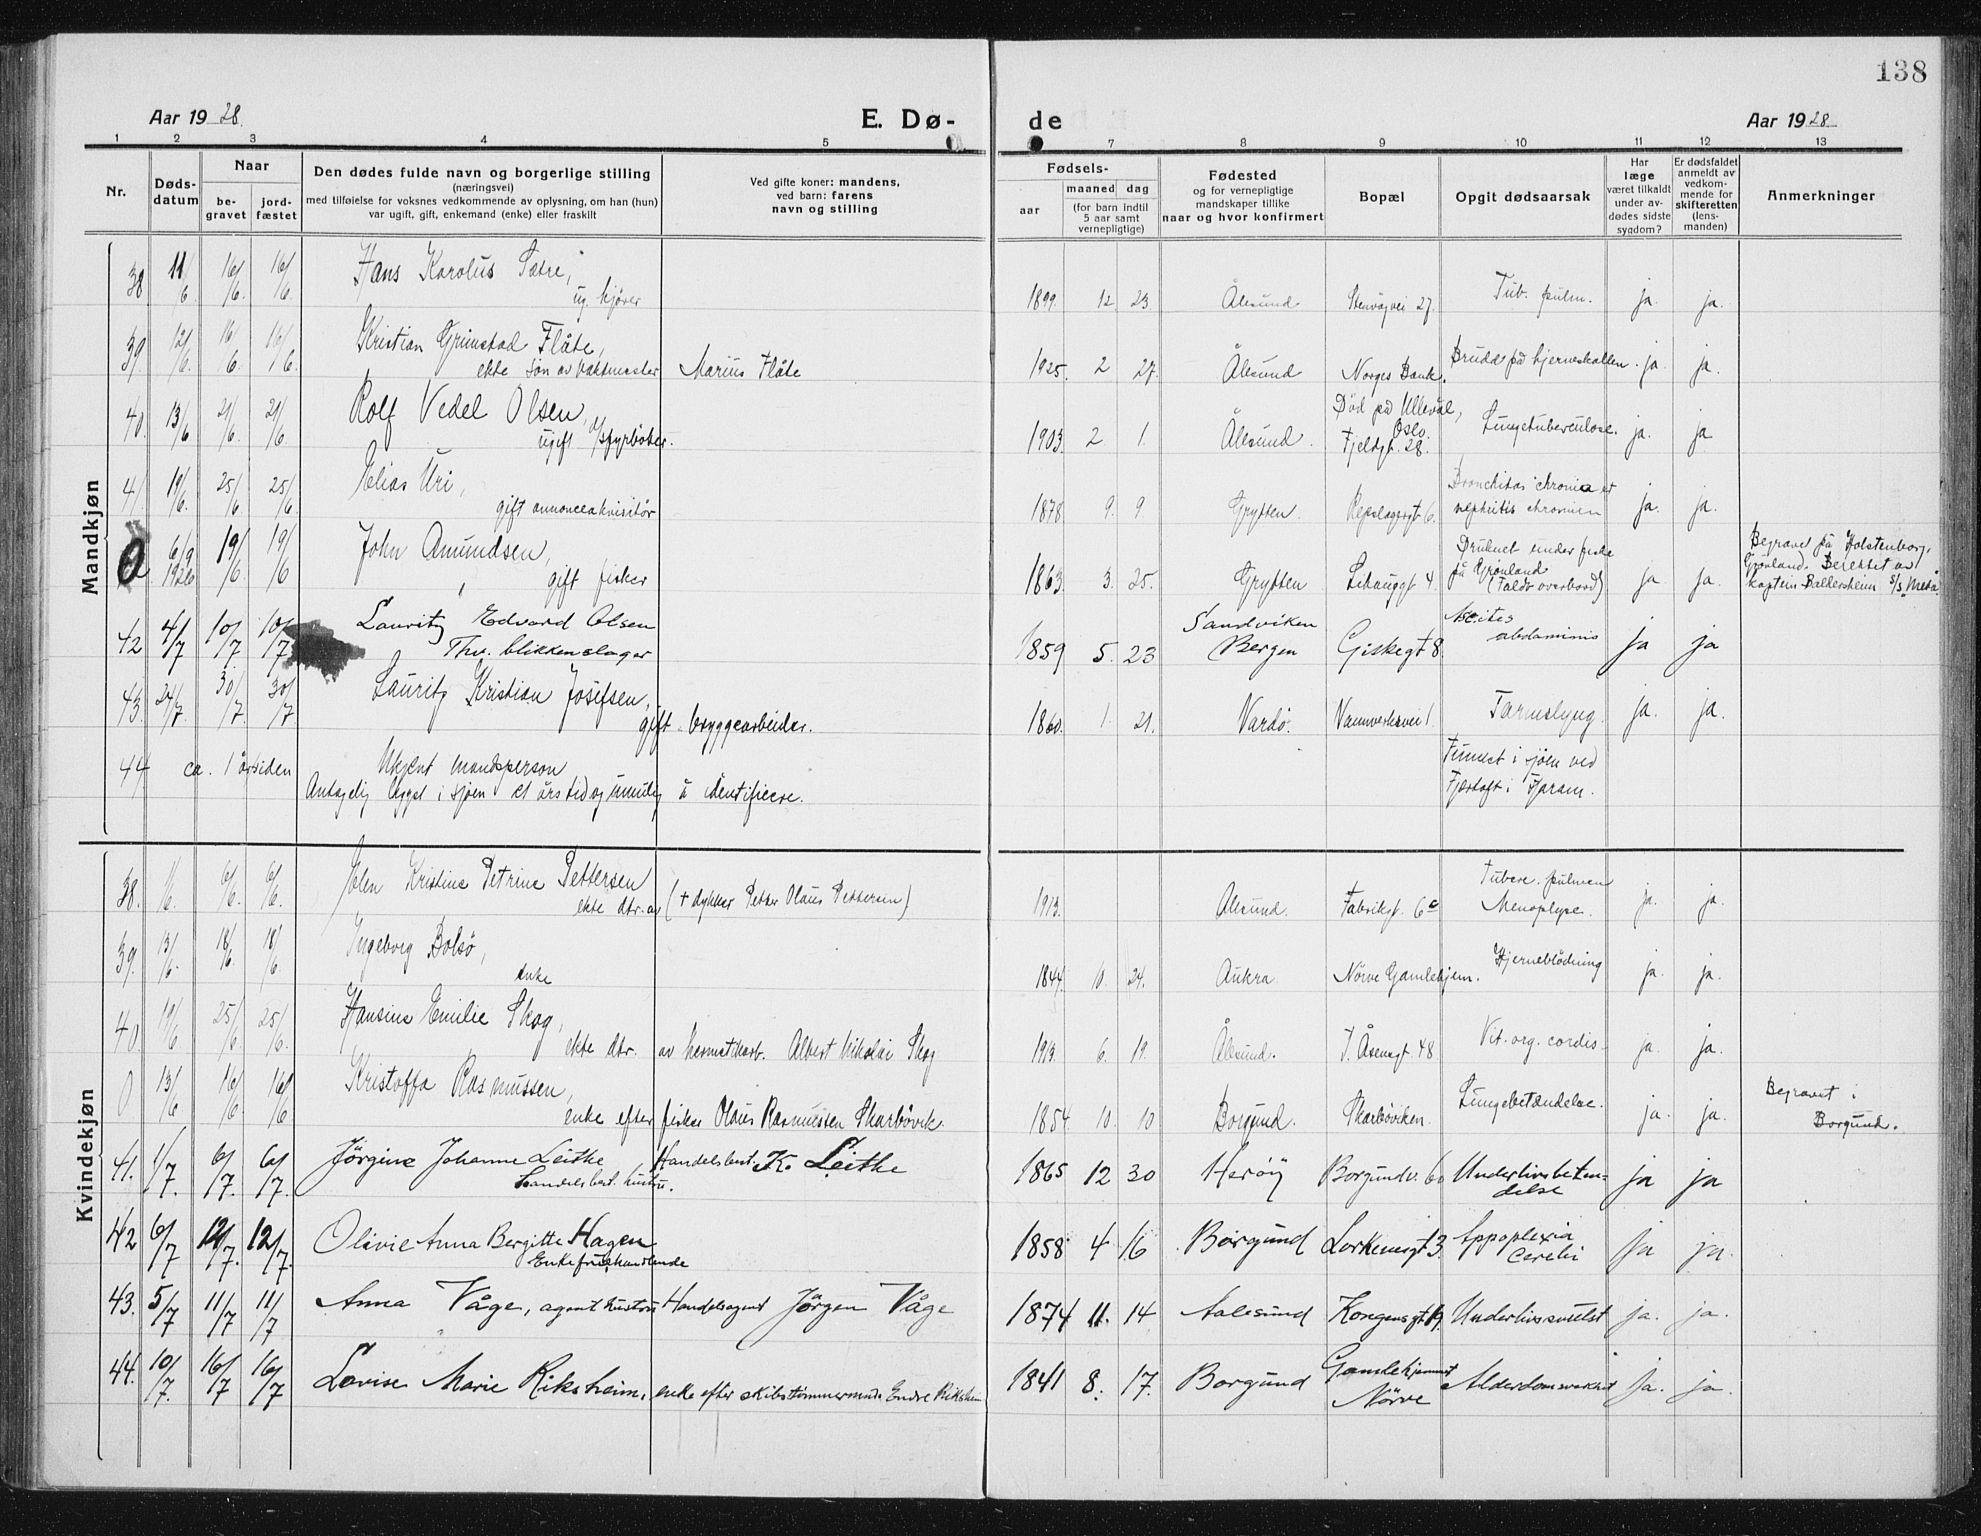 138
Aar 1928.
E. Dø-
de
Aar 1928
1 2 3 4 5 7 8 9 10 11 12 13
Nr.
Døds-
datum
Naar
be-
gravet
jord-
fæstet
Den dødes fulde navn og borgerlige stilling
(næringsvei)
med tilføielse for voksnes vedkommende av oplysning, om han (hun)
var ugift, gift, enkemand (enke) eller fraskilt
Ved gifte koner: mandens,
ved barn: farens
navn og stilling
Fødsels-
aar
maaned
dag
(for barn indtil
5 aar samt
vernepligtige)
Fødested
og for vernepligtige
mandskaper tillike
naar og hvor konfirmert
Bopæl
Opgit dødsaarsak
Har
læge
været tilkaldt
under av-
dødes sidste
sygdom?
Er dødsfaldet
anmeldt av
vedkom-
mende for
skifteretten
(lens-
manden)
Anmerkninger
Mandkjøn
38 11/6. 16/6. 16/6. Hans Karolus Sætre,
ug. kjører
1899. 12. 23. Ålesund Stenvågvei 27. Tub. pulm. ja. ja.
39 12/6. 16/6. 16/6. Kristian Grimstad Flåte,
ekte søn av vaktmester Marius Flåte
1925. 2 27. Ålesund Norges Bank. Brudd på hjerneskallen. ja. ja.
40. 13/6 21/6. 21/6 Rolf Vedel Olsen,
ugift fyrbøter.
1903 2 1. Ålesund. Død på Ullevål,
Oslo.
Fjeldgt. 28. Lungetuberculose. ja. ja
41 19/6. 25/6. 25/6. Elias Uri,
gift annonceakvisitør
1878. 9. 9. Grytten. Repslagergt 6. Bronchitis chronica et
nephritis chronica ja. ja.
0 6/9 1926 19/6. 19/6 John Amundsen,
gift fisker
1863. 3. 25. Grytten 4 Druknet under fiske
på Grønland
(Faldt overbord) ja ja.
Begravet på Holstenborg,
Grønland. Berettet av
kaptein Ballersheim s/s
42 4/7 10/7 10/7 Lauritz Edvard Olsen
Thv. blikkenslager
1859 5. 23 Sandviken
Bergen Giskegt 8. Ascites
abdominis ja ja
43. 24/7. 30/7. 30/7. Lauritz Kristian Josefsen,
gift bryggearbeider.
1860. 1. 21. Vardø. Vannverksvei 1 Tarmslyng. ja. ja.
44 ca. 1 år siden Ukjent mandsperson
Antagelig ligget i sjøen et års tid og umulig å identifisere.
Funnet i sjøen ved
Fjærtoft i Haram.
Kvindekjøn
38. 1/6. 6/6. 6/6. Kristine Petrine Pettersen
ekte dtr. av († dykker Petter Olaus Pettersen)
1913. Ålesund. Fabrikgt. 6c Tuberc. pulmon
ja. ja.
39. 13/6. 18/6. 18/6. Ingeborg Bolsø,
enke
1844. 10. 24. Aukra Nørve Gamlehjem. Hjerneblødning ja. ja.
40. 19/6 25/6. 25/6. Hansine Emilie Skog,
ekte dtr. av hermetikarb. Albert Nikolai Skog
1913. 6. 19. Ålesund. J. Åsensgt. 48 Vit. org. cordis. ja. ja.
0 13/6 16/6. 16/6 Kristoffa Rasmussen,
enke efter fisker Olaus Rasmussen Skarbøvik.
1854. 10. 10 Borgund. Skarbøviken. Lungebetændelse. ja. ja.
Begravet i
Borgund.
41. 1/7. 6/7. 6/7. Jørgine Johanne Leithe
handelsbest. hustru. Handelsbest. K. Leithe
1865 12 30 Herøy Borgundv. 60 Underlivsbeten-
delse ja ja
42 6/7 12/7. 12/7. Olivie Anna Bergitte Hagen
Enkefru
1858 4 16 Borgund 3. Appoplexia
Cerebri ja ja.
43. 5/7 11/7 11/7 Anna Våge, agent hustru Handelsagent Jørgen Våge
1874 11. 14 Aalesund Kongensgt 19. Underlivssvulst ja. ja.
44. 10/7. 16/7 16/7 Lovise Marie Riksheim, enke efter skibstømmermand Endre Riksheim
1841 8. 17. Borgund Gamlehjemmet
Nørve Alderdomsvakhet ja. ja.